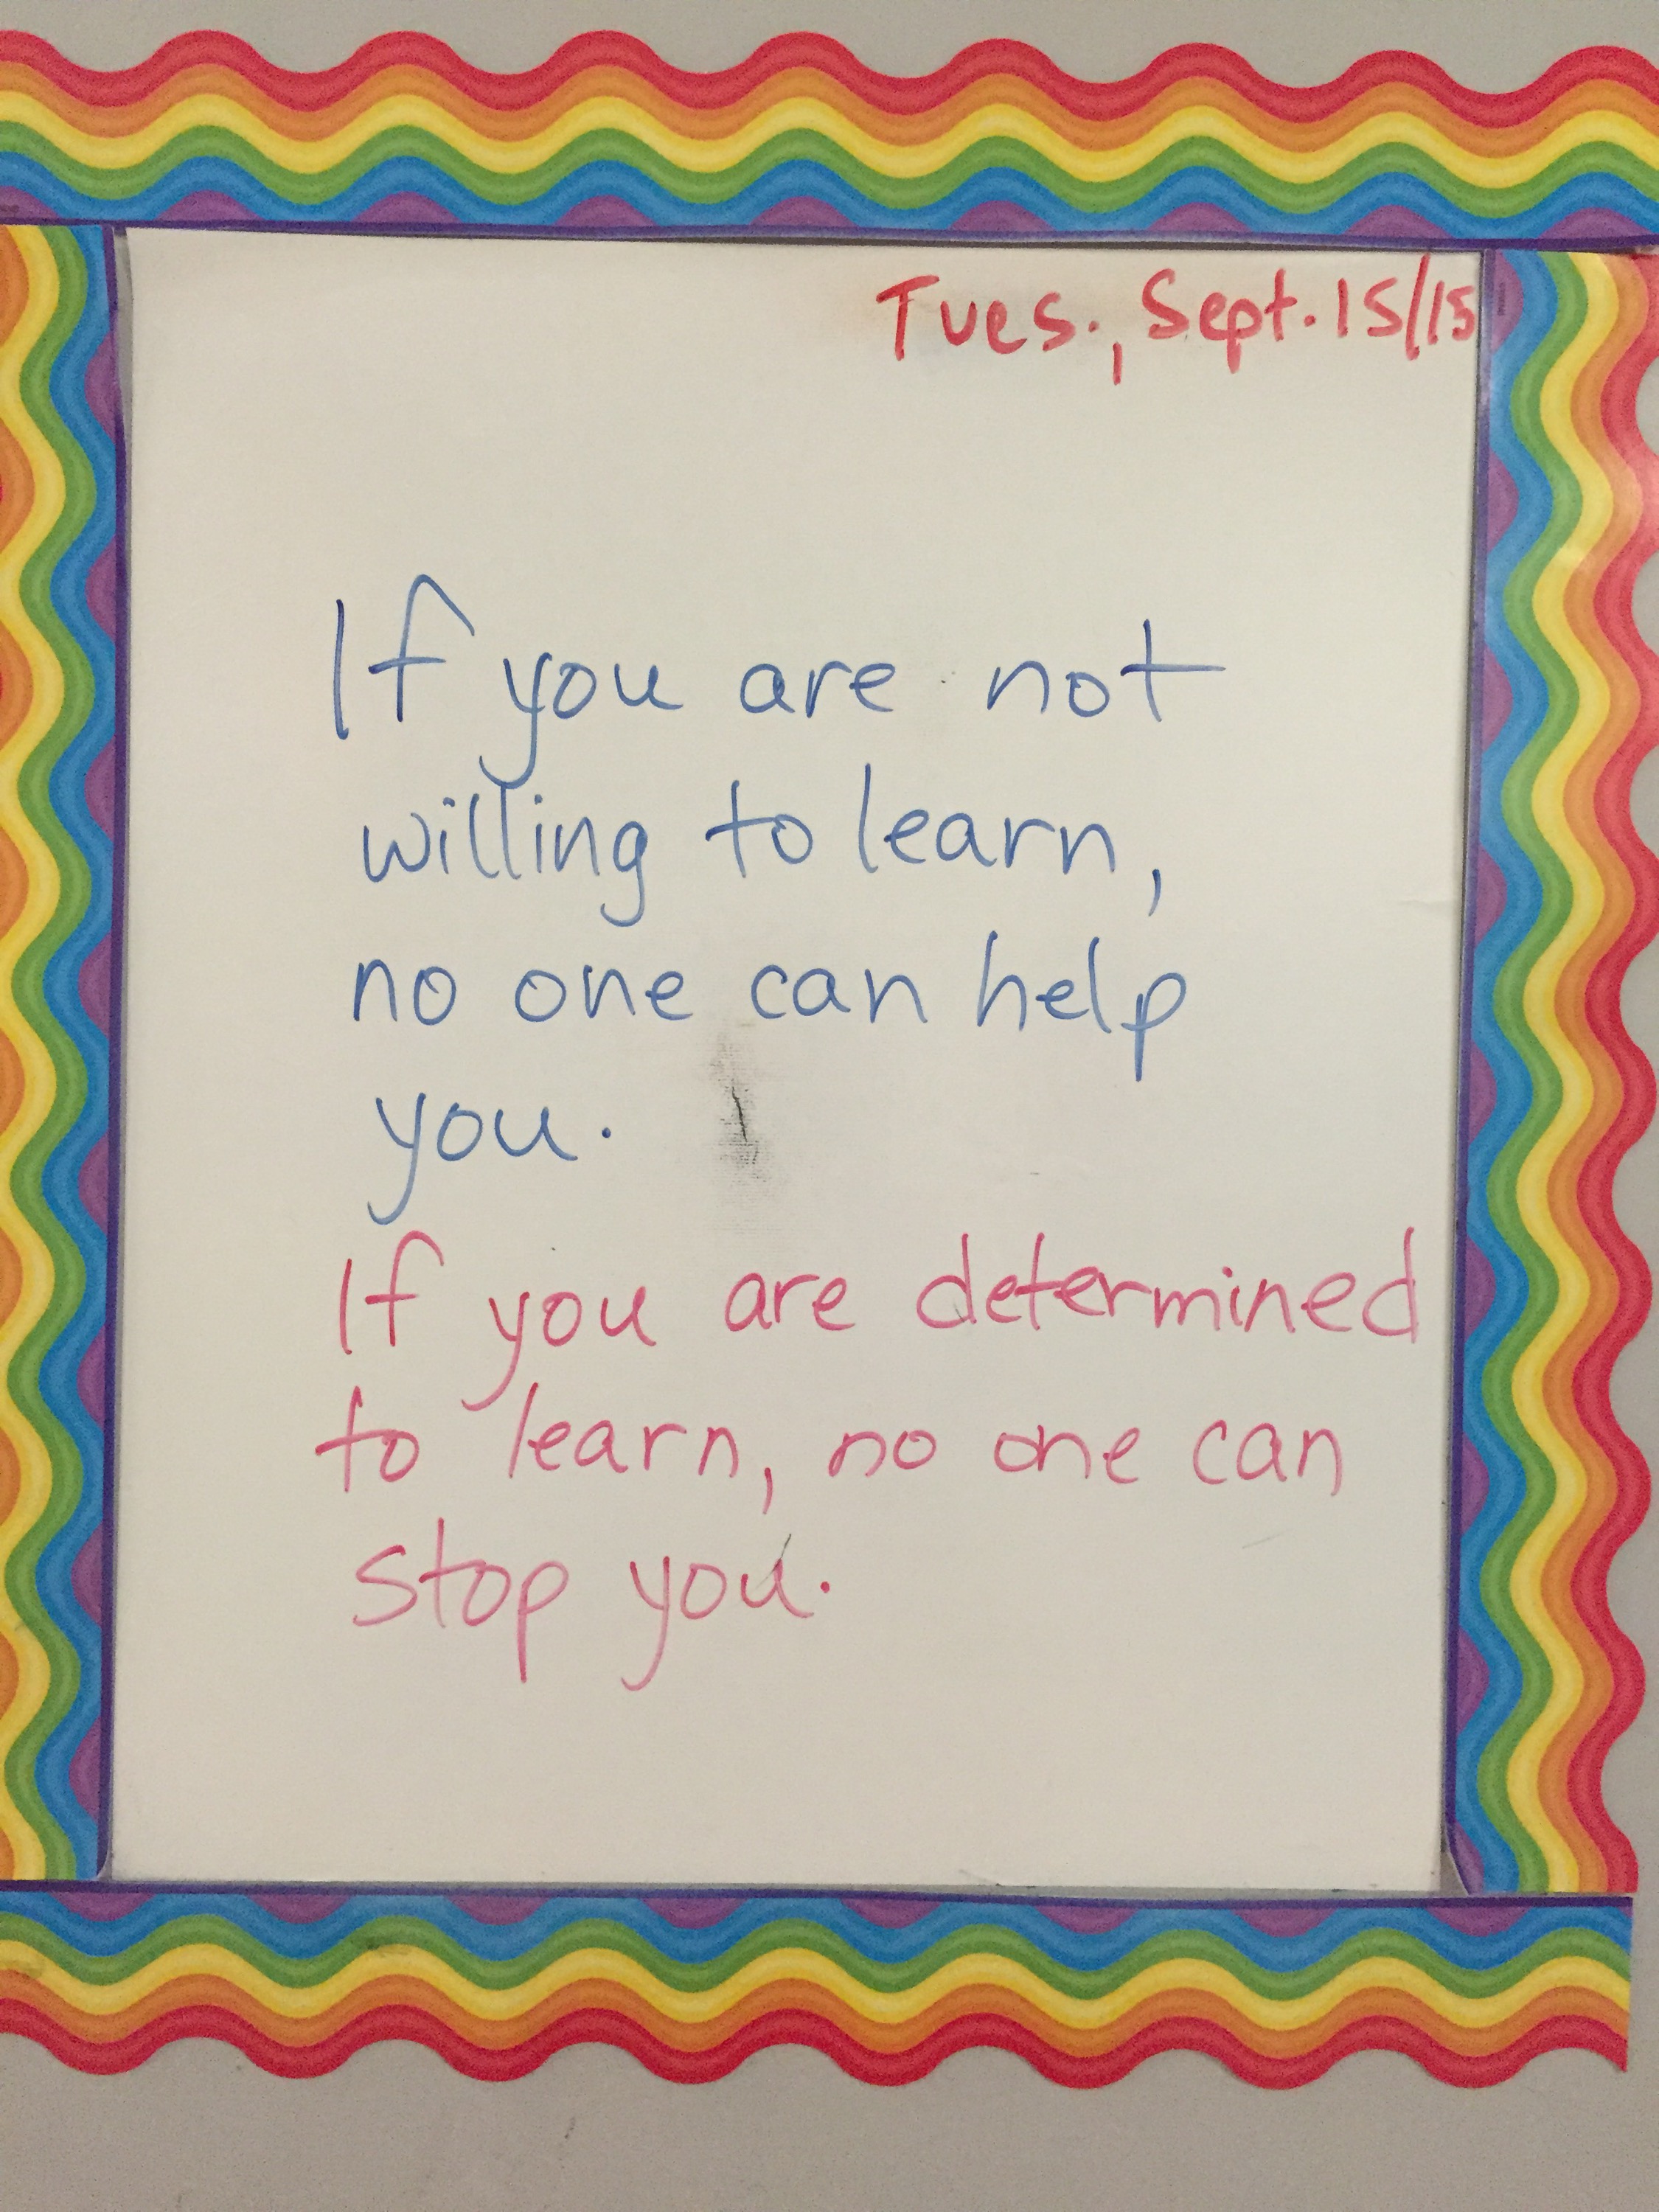 Tues., Sept. 15/15
If you are not
willing to learn,
no one can help
you.
If you are determined
to learn, no one can
stop you.